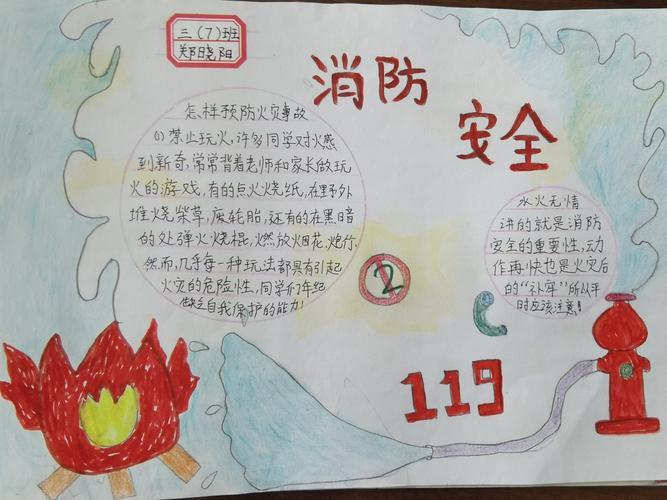 三(7)班
郑晓阳
消防
安全
怎样预防火灾事故
(1)禁止玩火,许多同学对火感
到新奇,常常背着老师和家长做玩
火的游戏,有的点火烧纸,在野外
堆烧柴草,废轮胎,还有的在黑暗
的处弹火烧棍,燃放烟花、炮竹,
然而,几乎每一种玩法都具有引起
火灾的危险性,同学们年纪
缺乏自我保护的能力!
水火无情
讲的就是消防
安全的重要性,动
作再快也是火灾后
的“补牢”所以平
时应该注意!
2
119